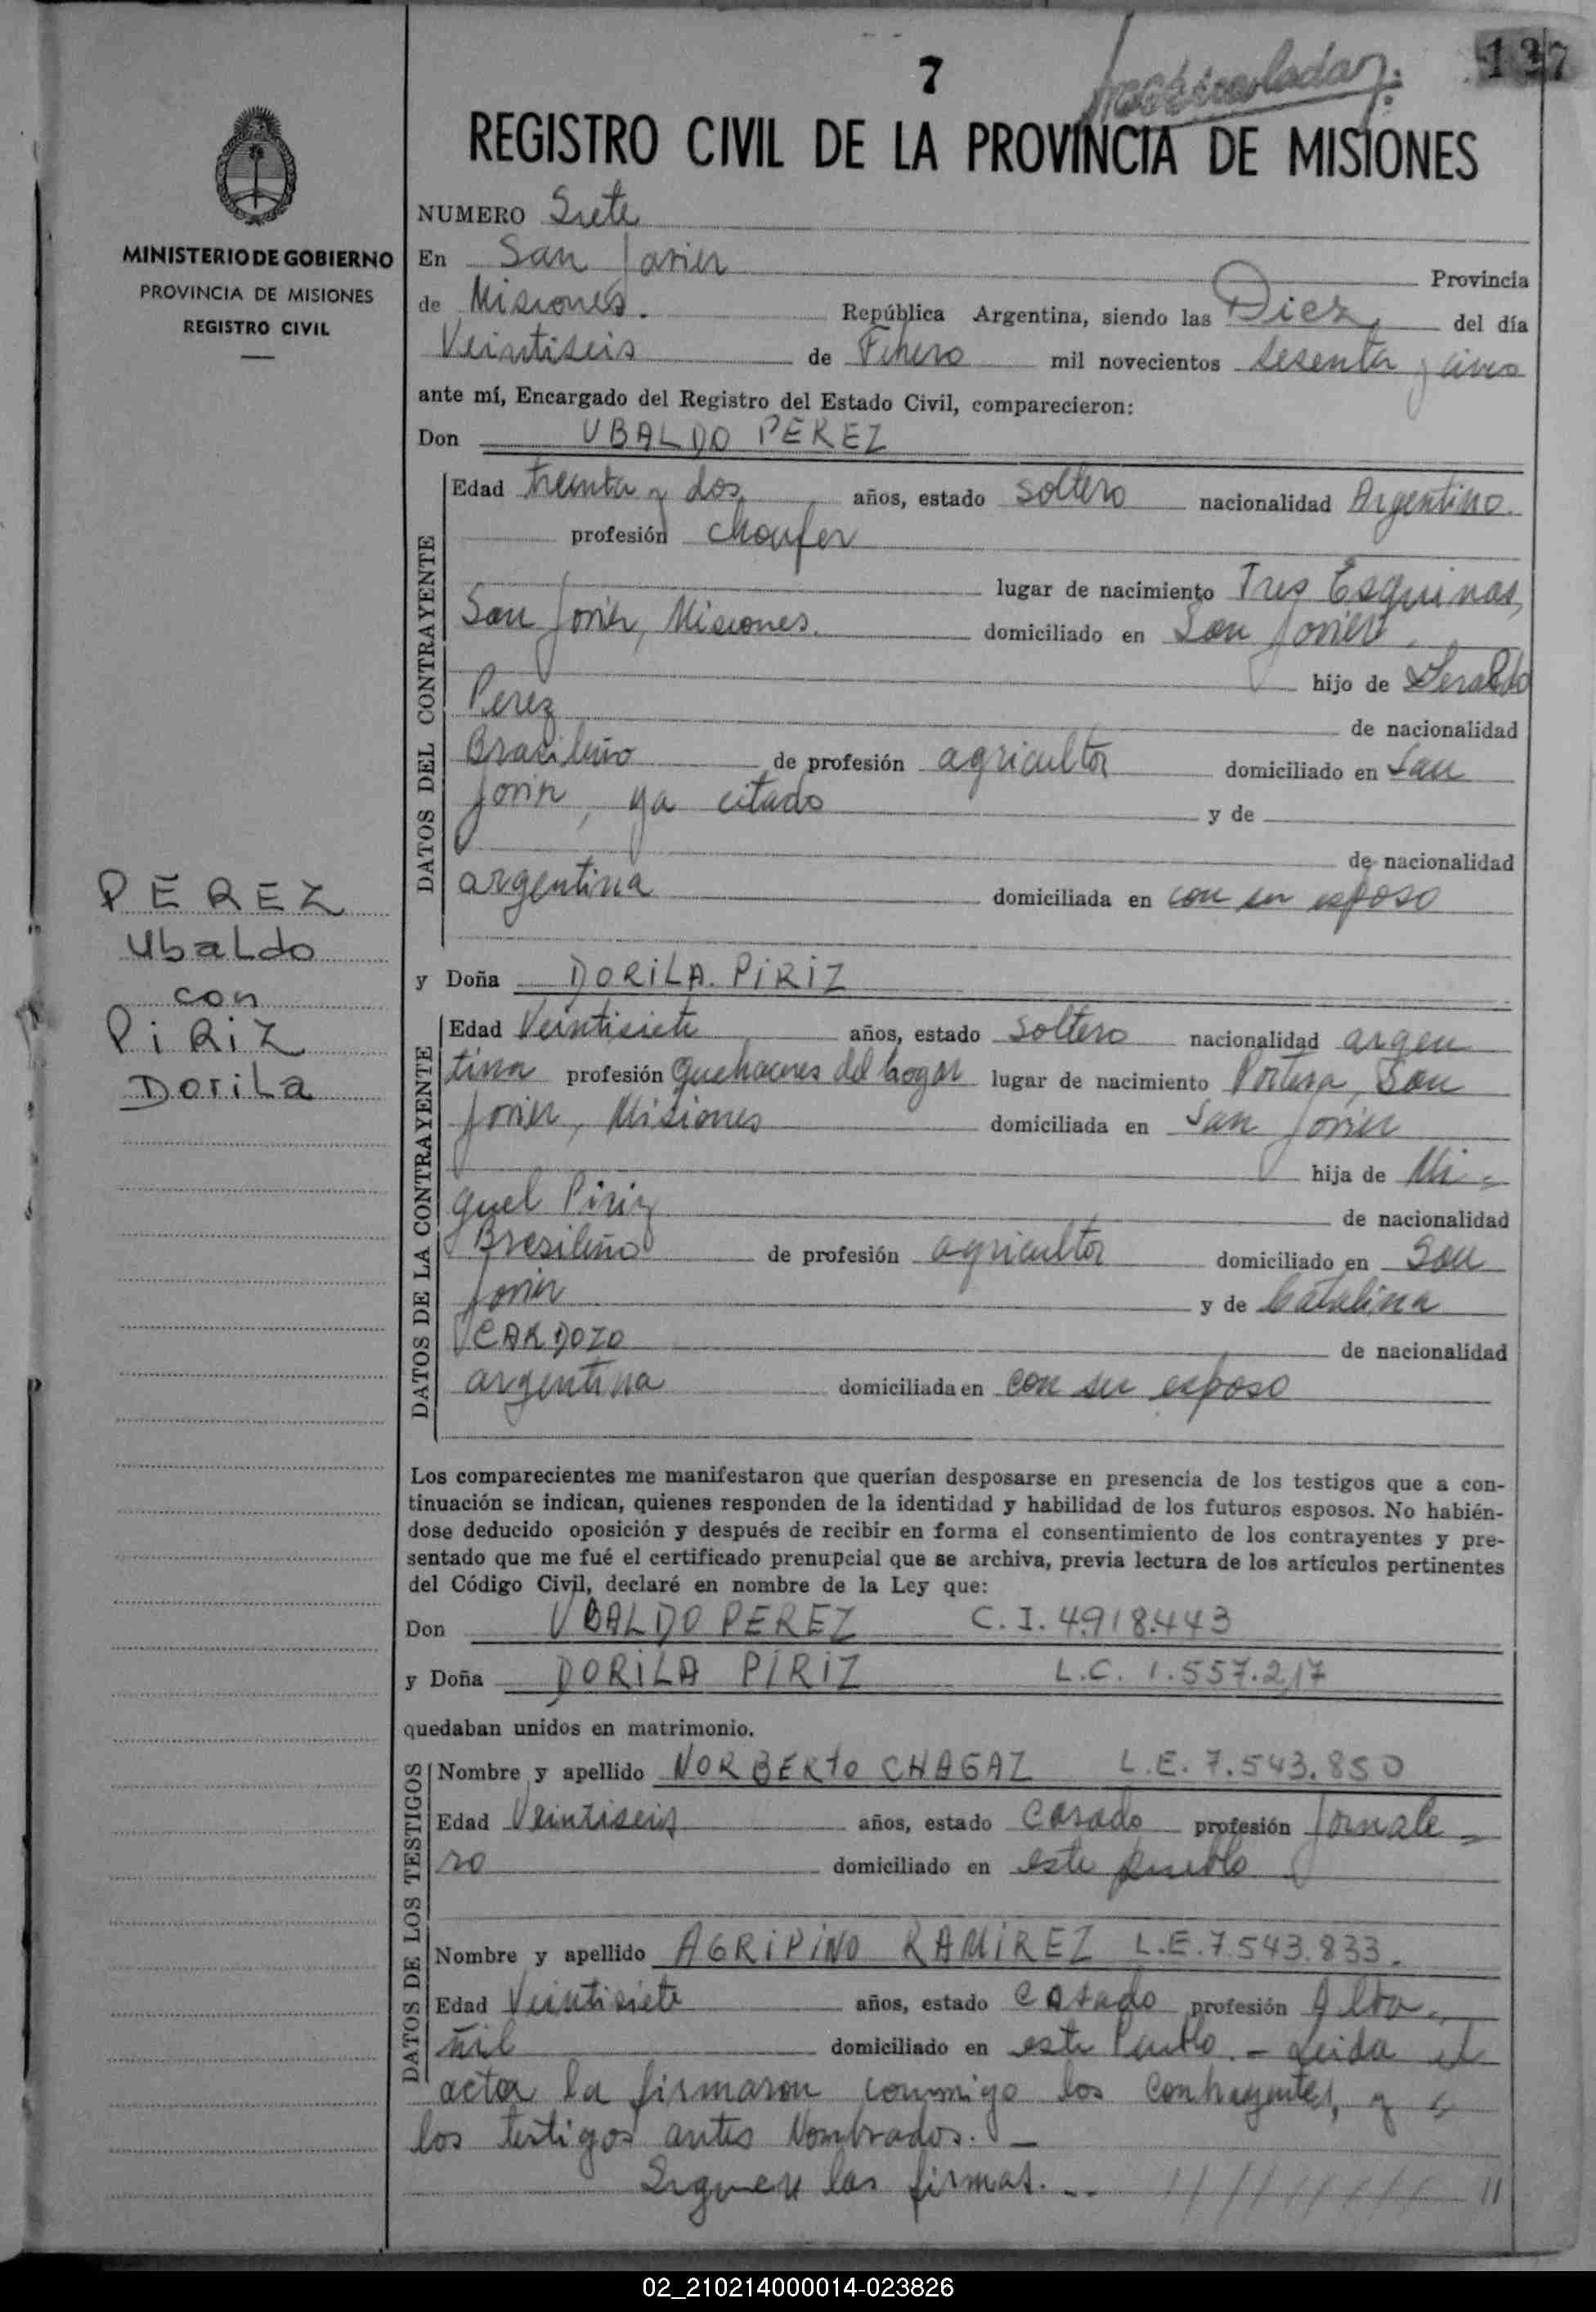 7
127
REGISTRO CIVIL DE LA PROVINCIA DE MISIONES
MINISTERIO DE GOBIERNO
PROVINCIA DE MISIONES
REGISTRO CIVIL
NUMERO Siete
En San Javier Provincia
de Misiones. República Argentina, siendo las Diez del día
Veintiseis de Enero mil novecientos sesenta y cinco
ante mí, Encargado del Registro del Estado Civil, comparecieron:
Don UBALDO PEREZ
DATOS DEL CONTRAYENTE
Edad treinta y dos años, estado soltero nacionalidad Argentino.
profesión choufer
lugar de nacimiento Tres Esquinas,
San Javier, Misiones. domiciliado en San Javier,
hijo de
Perez de nacionalidad
Brasileño de profesión agricultor domiciliado en San
Javier, ya citado y de
de nacionalidad
argentina domiciliada en con su esposo
PEREZ
Ubaldo
con
PiRiZ
DoriLa
y Doña DORiLA PiRiZ
DATOS DE LA CONTRAYENTE
Edad Veintisiete años, estado soltero nacionalidad argen
tina profesión Quehaceres del hogar lugar de nacimiento Portera, San
Javier, Misiones domiciliada en San Javier
hija de Mi-
guel Piriz de nacionalidad
Bresileño de profesión agricultor domiciliado en San
Javier y de Catalina
CARDOZO de nacionalidad
argentina domiciliada en con su esposo
Los comparecientes me manifestaron que querían desposarse en presencia de los testigos que a con-
tinuación se indican, quienes responden de la identidad y habilidad de los futuros esposos. No habién-
dose deducido oposición y después de recibir en forma el consentimiento de los contrayentes y pre-
sentado que me fué el certificado prenupcial que se archiva, previa lectura de los artículos pertinentes
del Código Civil, declaré en nombre de la Ley que:
Don UBALDO PEREZ C. I. 4.918.443
y Doña DORiLA PiRiZ L.C. 1.557.217
quedaban unidos en matrimonio.
DATOS DE LOS TESTIGOS
Nombre y apellido NORBERto CHAGAZ L.E. 7.543.850
Edad Veintiseis años, estado Casado profesión Jornale-
ro domiciliado en este pueblo
Nombre y apellido AGRiPiNO RAMiREZ L.E. 7.543.833.
Edad Veintisiete años, estado Casado profesión Alba-
ñil domiciliado en este Pueblo. - Leida el
acta la firmaron conmigo los contrayentes, y
los testigos antes Nombrados. -
Siguen las firmas. -
02_210214000014-023826